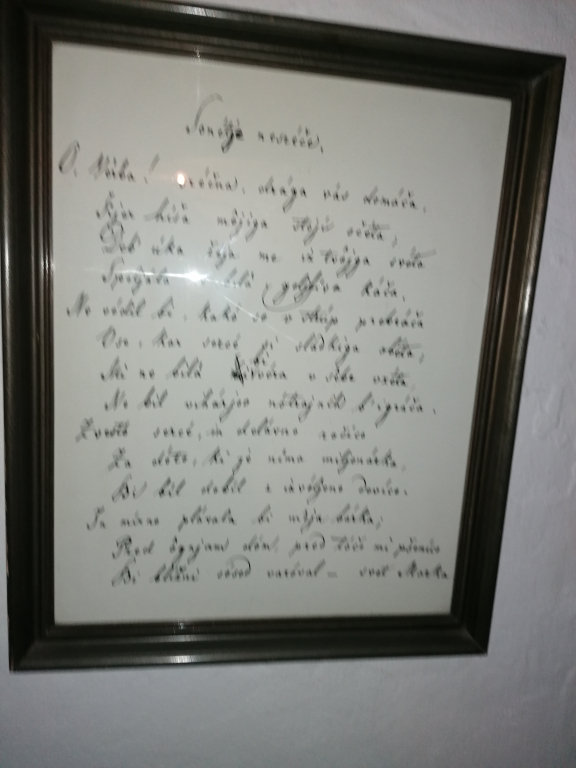 Sonetje nesreče.
O, Vérba! sréčna, draga vás domáča,
Kjer hiša mójiga stojí očéta,
Deb' uka žeja me iz tvójga svéta
Speljála bilá, goljfíva káča.
Ne védil bi, kakó se v strúp prebráča
Vse, kar sercé si sládkiga obéta;
Mi ne bilá bi véra v sébe vzéta,
Ne bil vihárjov nótrajnih b' igráča.
Zvestó sercé, in délavno ročíco
Za dóto, ki je nima miljonárka,
Bi bil dobíl z izvóljeno devíco.
In mirno plávala bi mója bárka,
Pred ógnjam dóm, pred tóčo mi pšeníco
Bi bližni sósed varóval – svet Marka